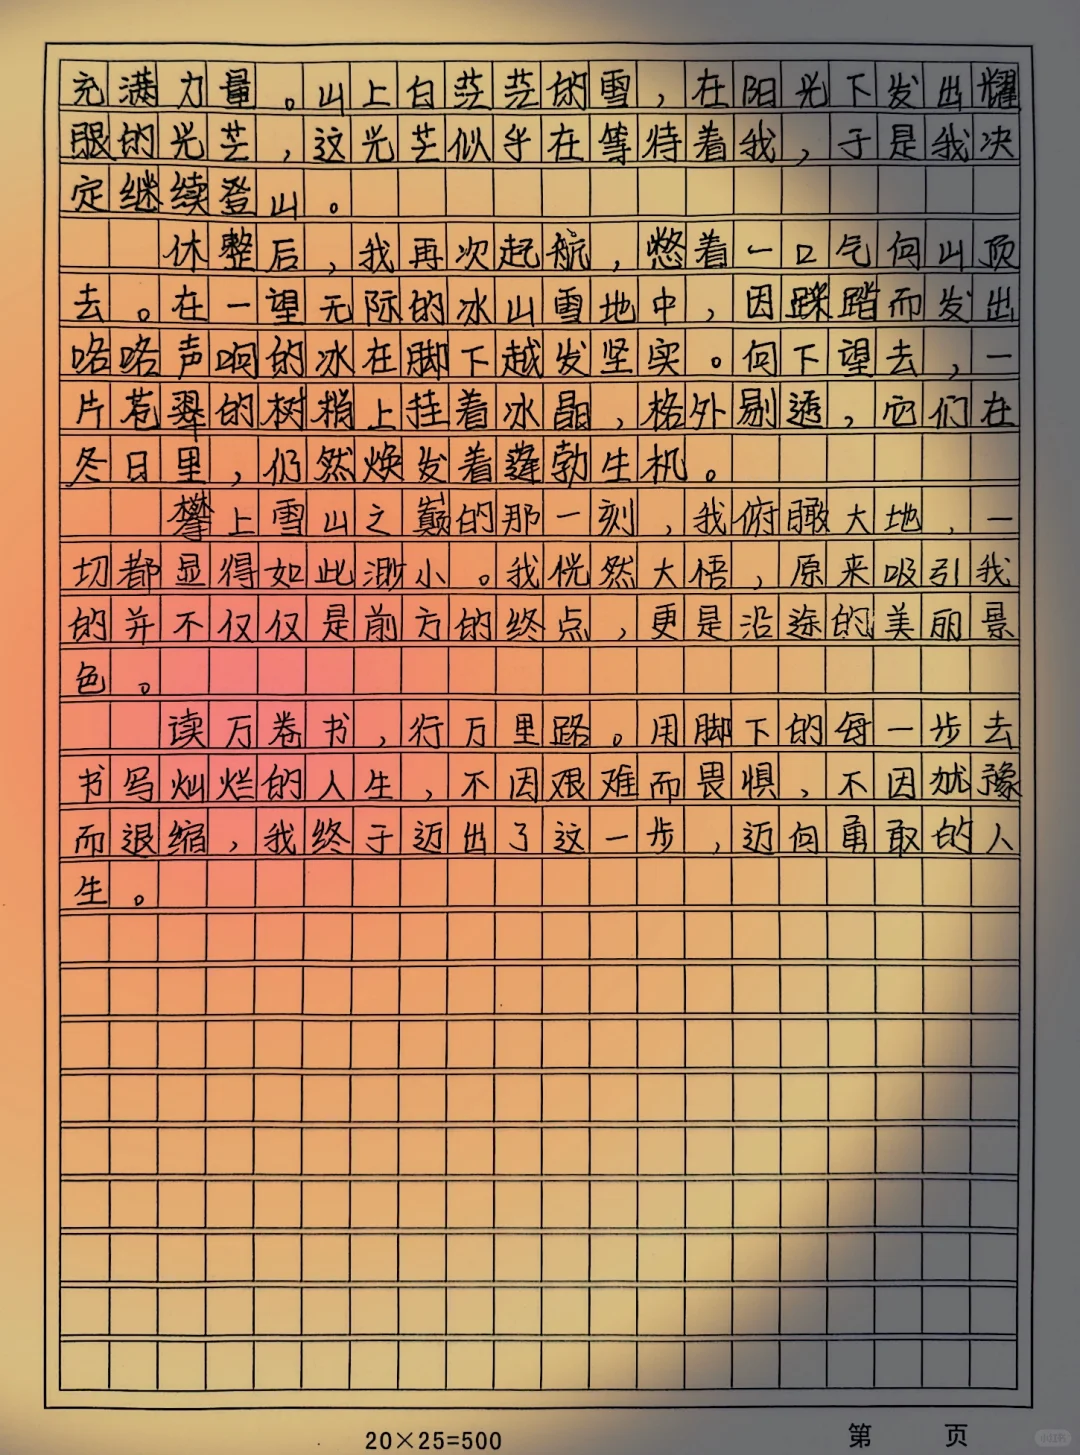 充满力量。山上白茫茫的雪，在阳光下发出耀
眼的光芒，这光芒似乎在等待着我，于是我决
定继续登山。
休整后，我再次起航，憋着一口气向山顶
去。在一望无际的冰山雪地中，因踩踏而发出
咯咯声响的冰在脚下越发坚实。向下望去，一
片苍翠的树梢上挂着冰晶，格外剔透，它们在
冬日里，仍然焕发着蓬勃生机。
攀上雪山之巅的那一刻，我俯瞰大地，一
切都显得如此渺小。我恍然大悟，原来吸引我
的并不仅仅是前方的终点，更是沿途的美丽景
色。
读万卷书，行万里路。用脚下的每一步去
书写灿烂的人生，不因艰难而畏惧，不因犹豫
而退缩，我终于迈出了这一步，迈向勇敢的人
生。
20×25=500
第 页